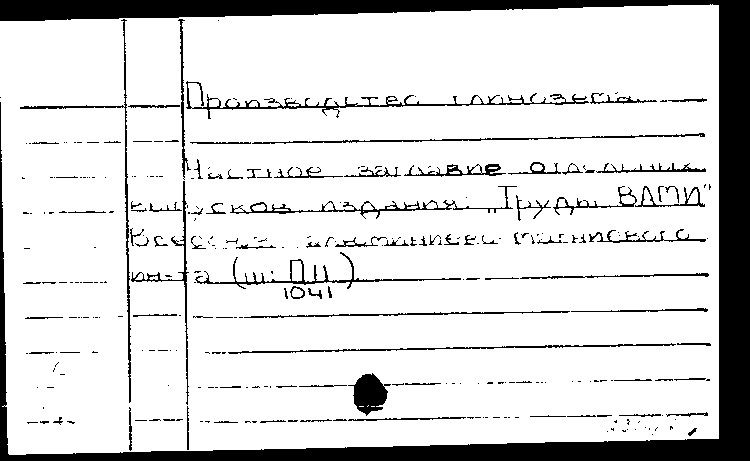 Производство глинозема
Частное заглавие отдельных
выпусков издания: „Труды ВАМИ"
Всесоюз. алюминиево-магниевого
ин-та (ш: П11
1041)